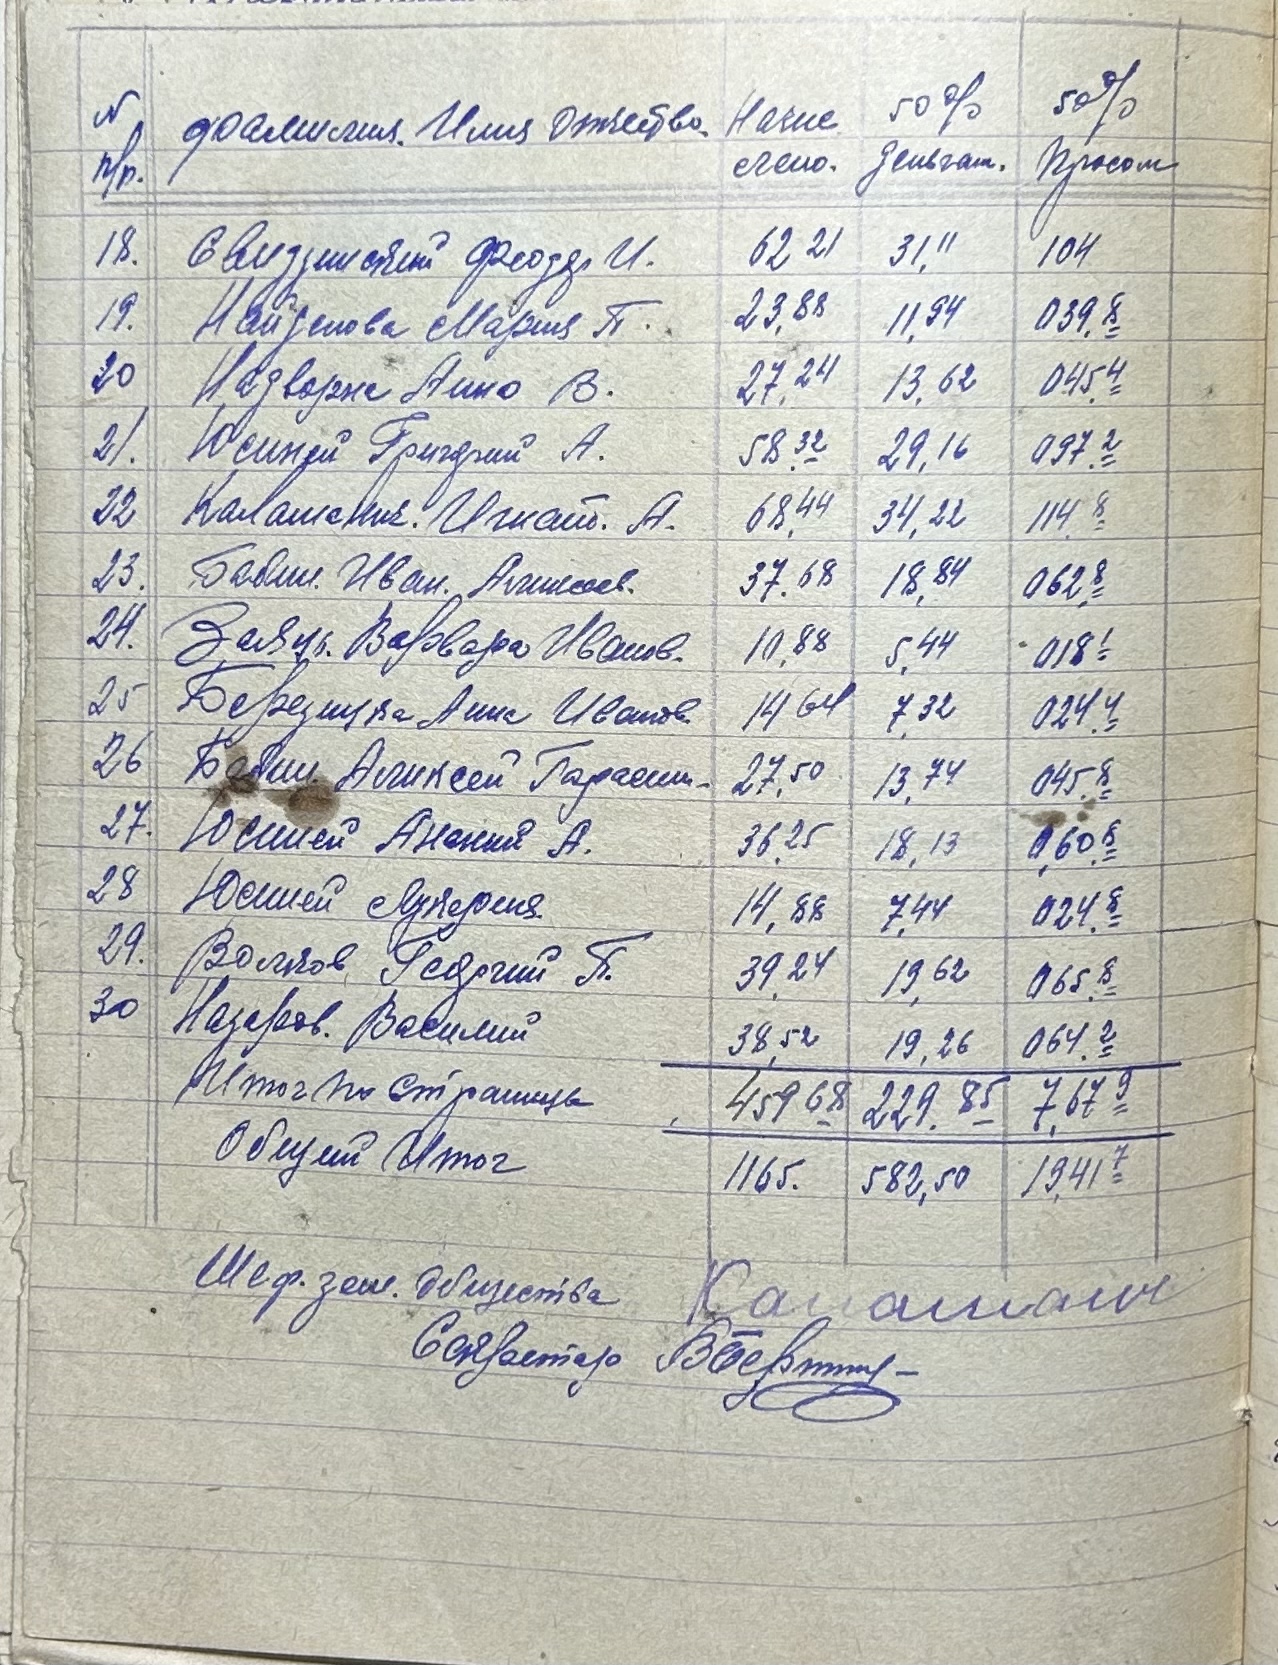 N Фоамилия. Имя Отчество. Начис 50% 50%
п/п. лено. Деньгам. Просом
18. Свидзинский Феодр И. 62 21 31,11 104
19. Найденова Мария П. 23,88 11,94 039,8
20 Надворна Анна В. 27,24 13,62 045,4
21. Юсиней Григорий А. 58,32 29,16 097,2
22 Калашник. Игнат. А. 68,44 34,22 114,8
23. Бабин. Иван. Алексеев. 37.68 18,84 062,8
24. Заяц. Варвара Иванов. 10,88 5,44 018,1
25 Березнука Анна Иванов 14 64 7,32 024,4
26 Бабин Алексей Гарасим- 27,50 13,74 045,8
27. Юсиней Ананий А. 36,25 18,13 0,60,8
28 Юсиней Лукерия 14,88 7,44 024,8
29. Волков Георгий П. 39,24 19,62 065,8
30 Назаров. Василий 38,52 19,26 064,2
Итог по страницы 459 68 229.85 7,67 9
Общий Итог 1165. 582,50 19,41 7
Шеф. зем. общества
Секретарь